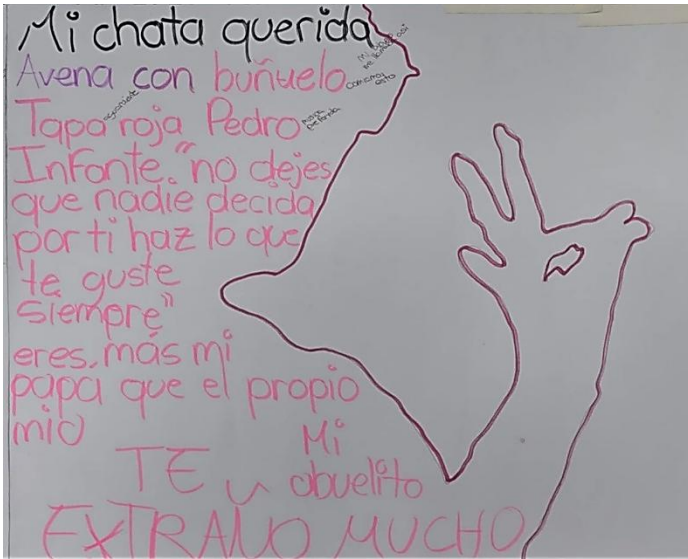 Mi chata querida
Avena con buñuelo
Tapa roja Pedro
Infante. "no dejes
que nadie decida
por ti haz lo que
te guste
siempre"
eres más mi
papa que el propio
mio
Mi
abuelito
TE
EXTRAÑO MUCHO